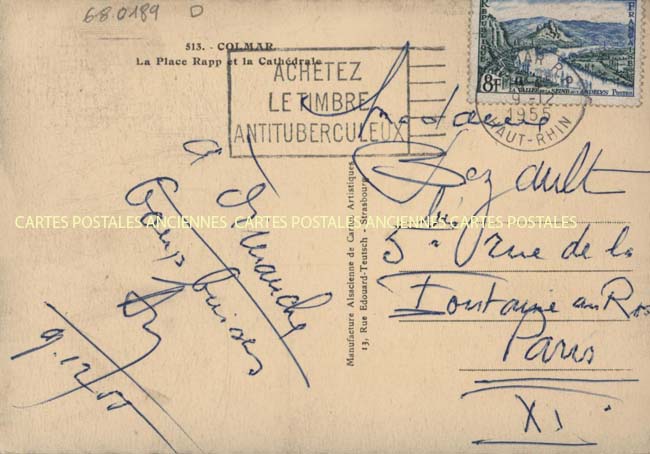 68.0189 D
513. - COLMAR
La Place Rapp et la Cathédrale
ACHETEZ
LE TIMBRE
ANTITUBERCULEUX
REPUBLIQUE
FRANÇAISE
8F
LA VALLÉE DE LA SEINE AUX ANDELYS POSTES
COLMAR RP
9-12
1955
HAUT-RHIN
à Dimanche
Grosses
bises
9.12/55
Manufacture Alsacienne de Cartes Artistiques
13, Rue Edouard-Teutsch - Strasbourg
Madame
Bezault
5 rue de la
Fontaine au Roi
Paris
XI
CARTES POSTALES ANCIENNES CARTES POSTALES ANCIENNES CARTES POSTALES